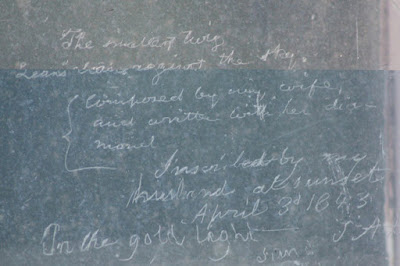 The smallest twig
Leans clear against the sky
Composed by my wife,
and written with her dia-
mond
Inscribed by my
husband at sunset
April 3d 1843
In the gold light S. A